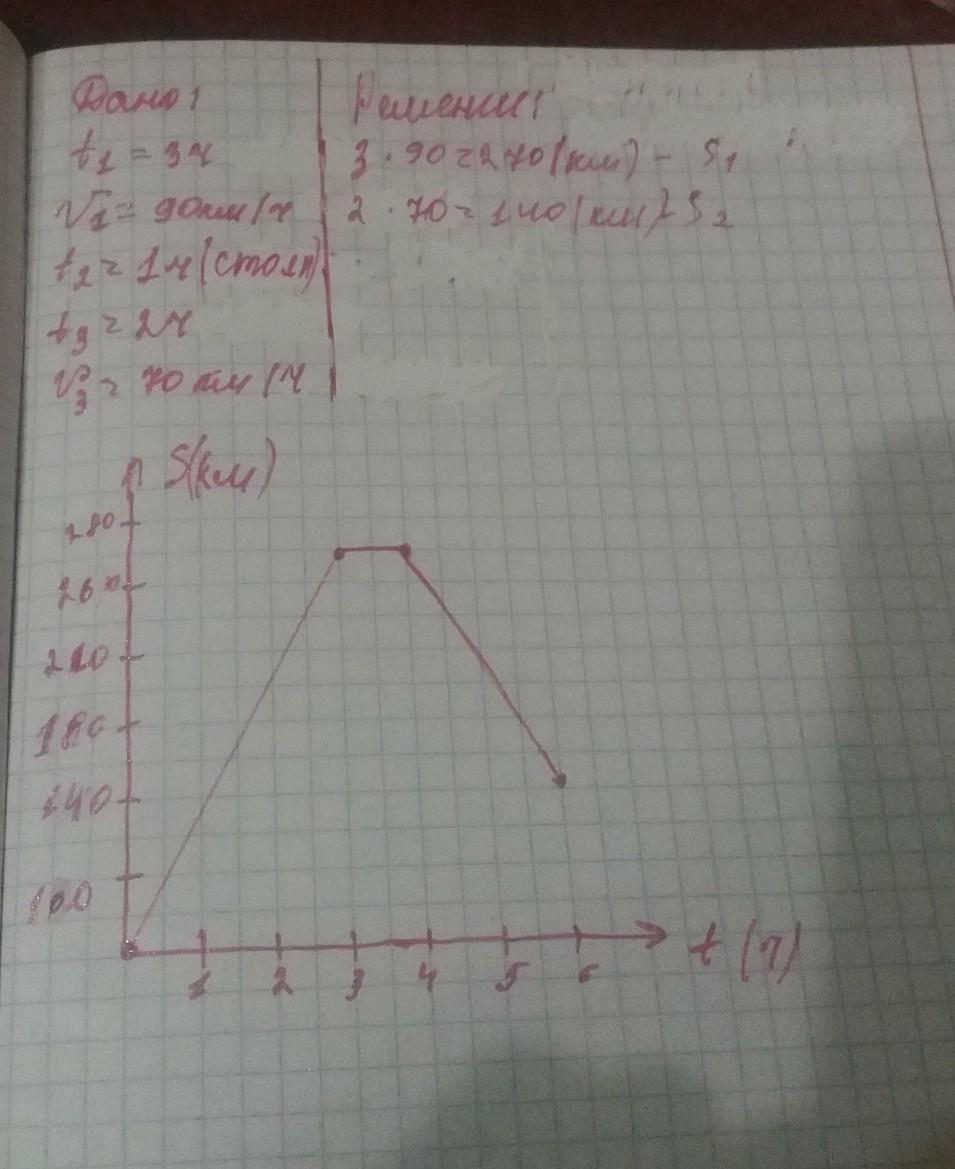 Дано:
t₁ = 3ч
V₁ = 90км/ч
t₂ = 1ч (стоял)
t₃ = 2ч
V₃ = 70 км/ч
Решение:
3 · 90 = 270 (км) - S₁
2 · 70 = 140 (км) - S₂
S(км)
280
260
220
180
140
100
1 2 3 4 5 6 t (ч)